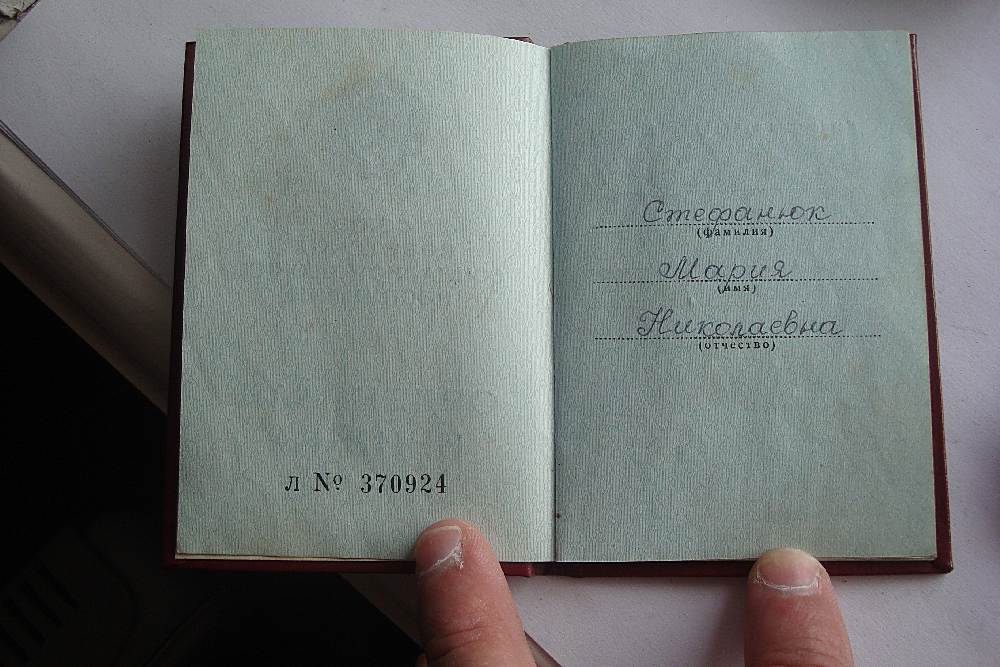 л № 370924
Стефанюк
(фамилия)
Мария
(имя)
Николаевна
(отчество)